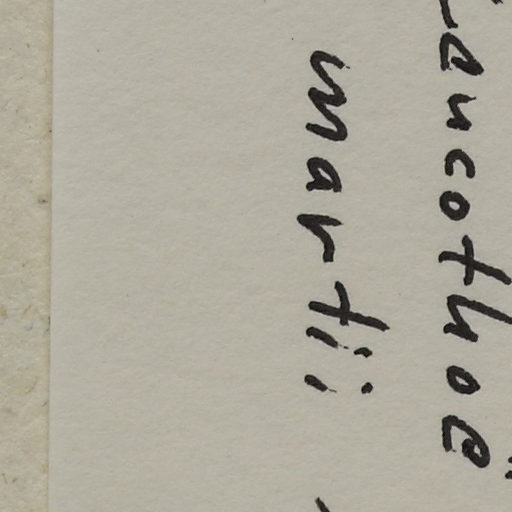 Leucothoë
martii